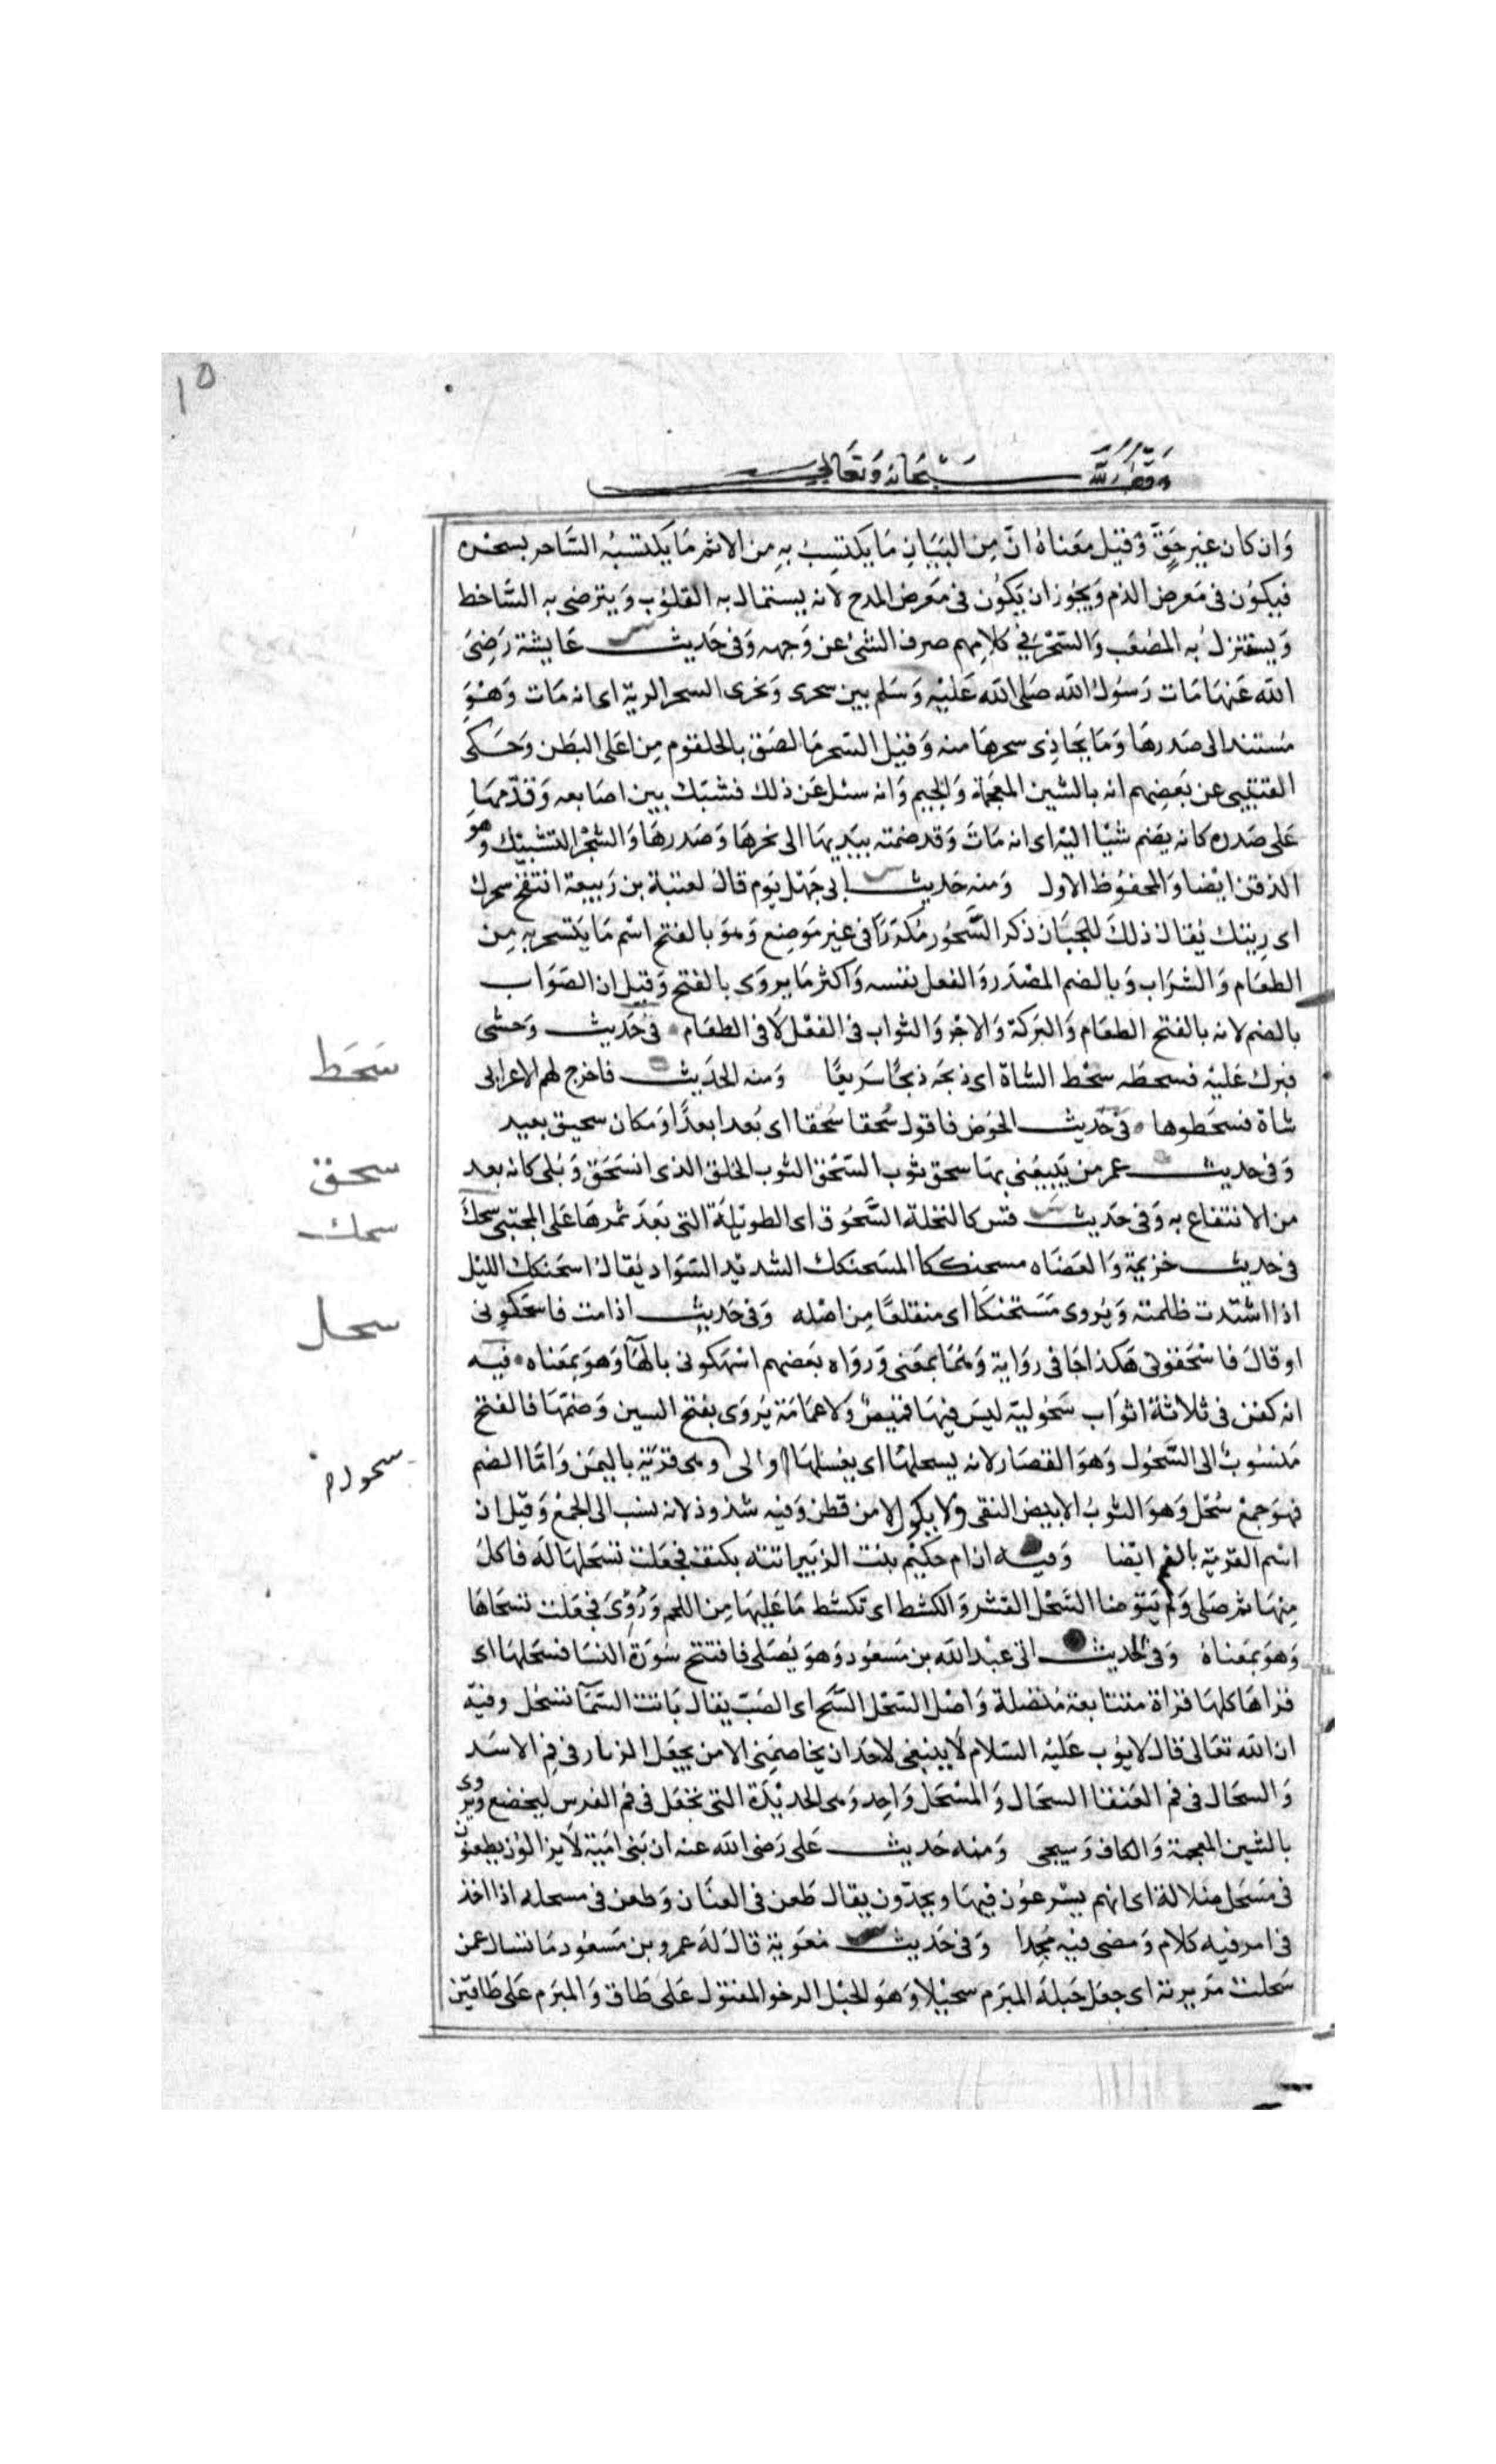 وقف لله سبحانه وتعالى
وان كان غير حق وقيل معناه ان من البيان ما يكتسب به من الاثم ما يكتسبه الساحر بسحره
فيكون في معرض الذم ويجوز ان يكون في معرض المدح لانه يستمال به القلوب ويترضى به الساخط
ويستنزل به المصعب والسحر في كلامهم صرف الشئ عن وجهه وفي حديث عايشة رضى
الله عنها مات رسول الله صلى الله عليه وسلم بين سحرى ونحرى السحر الرية اى انه مات وهو
مستند الى صدرها وما يحاذى سحرها منه وقيل السحر ما لصق بالحلقوم من اعلى البطن وحكى
القتيبى عن بعضهم انه بالشين المعجمة والجيم وانه سئل عن ذلك فشبك بين اصابعه وقدمها
على صدره كانه يضم شيا اليه اى انه مات وقد ضمته بيديها الى نحرها وصدرها والشجر التشبيك وهو
الذقن ايضا والمحفوظ الاول ومنه حديث ابى جهل يوم قال لعتبة بن ربيعة انتفخ سحرك
اى ريتك يقال ذلك للجبان ذكر السحور مكررا في غير موضع وهو بالفتح اسم ما يتسحر به من
الطعام والشراب وبالضم المصدر والفعل نفسه واكثر ما يروى بالفتح وقيل ان الصواب
بالضم لانه بالفتح الطعام والبركة والاجر والثواب في الفعل لا في الطعام في حديث وحشى
فبرك عليه فسحطه سحط الشاة اى ذبحه ذبحا سريعا ومنه الحديث فاخرج لهم الاعرابى
شاة فسحطوها في حديث الحوض فاقول سحقا سحقا اى بعدا بعدا ومكان سحيق بعيد
وفي حديث عمر من يبيعنى بها سحق ثوب السحق الثوب الخلق الذى انسحق وبلى كانه بعد
من الانتفاع به وفي حديث قس كالنخلة السحوق اى الطويلة التى بعد ثمرها على المجتبى سحك
في حديث خزيمة والعضاه مسحنككا المسحنكك الشديد السواد يقال اسحنكك الليل
اذا اشتدت ظلمته ويروى مستحنكا اى منقلعا من اصله وفي حديث اذا مت فاسحكونى
او قال فاسحقونى هكذا جا في رواية وهما بمعنى ورواه بعضهم اسهكونى بالهآ وهو بمعناه فيه
انه كفن في ثلاثة اثواب سحولية ليس فيها قميص ولا عمامة يروى بفتح السين وضمها فالفتح
منسوب الى السحول وهو القصار لانه يسحلها اى يغسلها او الى وهى قرية باليمن واما الضم
فهو جمع سحل وهو الثوب الابيض النقى ولا يكون الا من قطن وفيه شذوذ لانه نسب الى الجمع وقيل ان
اسم القرية بالضم ايضا وفيه ان ام حكيم بنت الزبير اتته بكتف فجعلت تسحلها له فاكل
منها ثم صلى ولم يتوضا السحل القشر والكشط اى تكشط ما عليها من اللحم وروى فجعلت تسحاها
وهو بمعناه وفي الحديث اتى عبد الله بن مسعود وهو يصلى فافتتح سورة النسا فسحلها اى
قراها كلها قراة متتابعة متصلة واصل السحل السح اى الصب يقال باتت السمآ تسحل وفيه
ان الله تعالى قال لايوب عليه السلام لا ينبغى لاحد ان يخاصمنى الا من يجعل الزيار في فم الاسد
والسحال في فم العنقا السحال والمسحل واحد وهى الحديدة التى تجعل في فم الفرس ليخضع ويروى
بالشين المعجمة والكاف وسيجى ومنه حديث على رضى الله عنه ان بنى امية لا يزالون يطعنون
في مسحل ضلالة اى انهم يسرعون فيها ويجدون يقال طعن في العنان وطعن في مسحله اذا اخذ
في امر فيه كلام ومضى فيه مجدا وفي حديث معوية قال له عمرو بن مسعود ما تسال عمن
سحلت مريرته اى جعل حبله المبرم سحيلا وهو الحبل الرخو المفتول على طاق والمبرم على طاقين
سحط
سحق
سحك
سحل
سحول
١٥